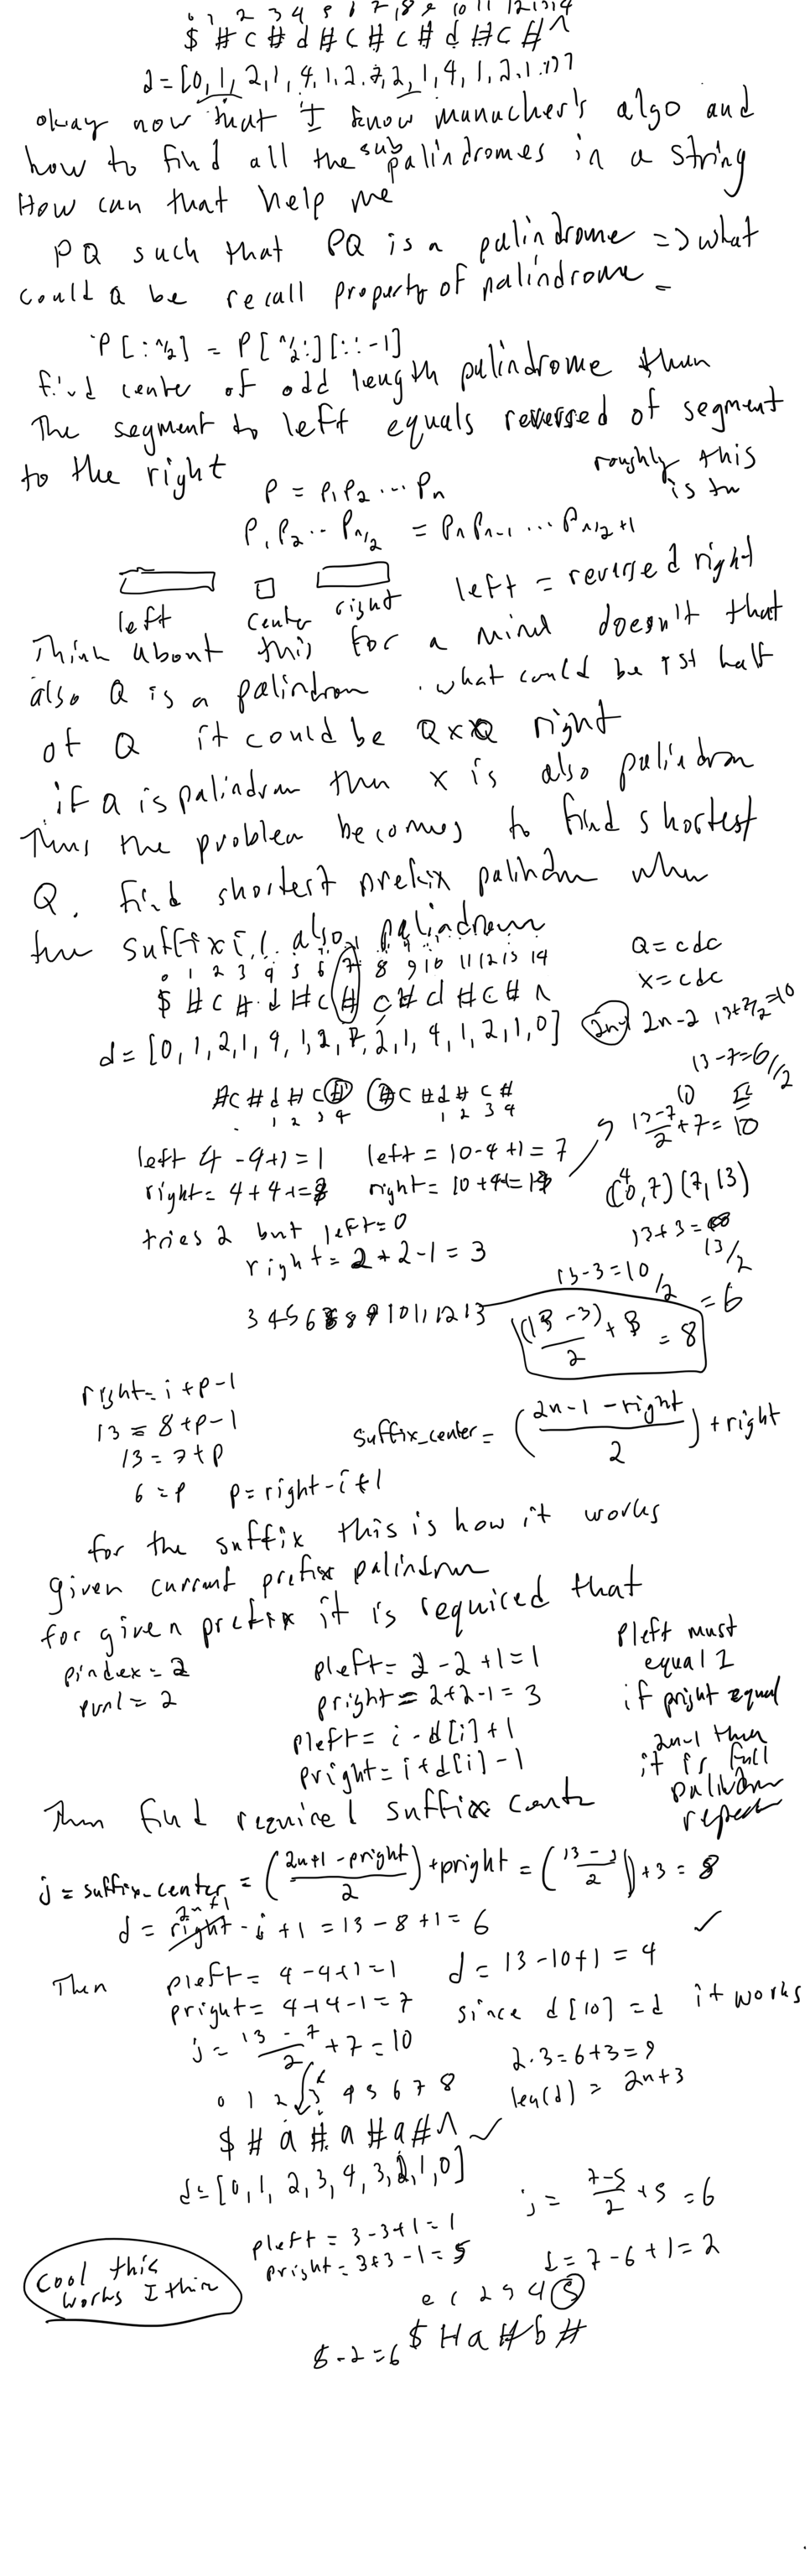 0 1 2 3 4 5 6 7 8 9 10 11 12 13 14
$ # c # d # c # c # d # c # ^
d = [0, 1, 2, 1, 4, 1, 2, 7, 2, 1, 4, 1, 2, 1, 0]
okay now that I know manacher's algo and
how to find all the sub palindromes in a string
How can that help me
PQ such that PQ is a palindrome => what
could Q be recall property of palindrome
P[:n/2] = P[n/2:][::-1]
find center of odd length palindrome then
The segment to left equals reversed of segment
to the right
roughly this
is tru
P = P1P2 ... Pn
P1P2 ... Pn/2 = PnPn-1 ... Pn/2+1
left center right
left = reversed right
Think about this for a mind doesn't that
also Q is a palindrom . what could be 1st half
of Q it could be QxQ right
if Q is palindrom then x is also palindrom
Thus the problem becomes to find shortest
Q. find shortest prefix palindrom when
the suffix is also palindrom
0 1 2 3 4 5 6 7 8 9 10 11 12 13 14
$ # c # d # c # c # d # c # ^
Q = cdc
x = cdc
d = [0, 1, 2, 1, 4, 1, 2, 7, 2, 1, 4, 1, 2, 1, 0]
2n-2
13-7=6/2
#c#d#c# #c#d#c#
1 2 3 4 1 2 3 4
left 4-4+1=1 left = 10-4+1=7
right = 4+4-1=7 right = 10+4-1=13
13-7/2 + 7 = 10
(7, 13)
tries 2 but left=0
right = 2+2-1 = 3
13/2
13-3=10/2
= 6
3 4 5 6 7 8 9 10 11 12 13
(13-3)/2 + 3 = 8
right = i+p-1
13 = 8+p-1
13 = 7+p
6 = p p = right-i+1
suffix_center = (2n-1-right/2) + right
for the suffix this is how it works
given current prefix palindrom
for given prefix it is required that
pindex = 2
pval = 2
pleft = 2-2+1=1
pright = 2+2-1=3
pleft = i-d[i]+1
pright = i+d[i]-1
pleft must
equal 1
if pright equal
2n-1 then
it is full
palindrom
repeat
Then find required suffix cente
j = suffix_center = (2n+1-pright/2)+pright = (13-3/2)+3 = 8
d = 2n+1 - j + 1 = 13-8+1 = 6
Then pleft = 4-4+1=1 d = 13-10+1 = 4
pright = 4+4-1=7 since d[10] = d it works
j = 13-7/2 + 7 = 10
2·3=6+3=9
len(d) = 2n+3
0 1 2 3 4 5 6 7 8
$ # a # a # a # ^
d = [0, 1, 2, 3, 4, 3, 2, 1, 0]
j = 7-5/2 + 5 = 6
pleft = 3-3+1=1
pright = 3+3-1=5
d = 7-6+1 = 2
Cool this
works I thin
0 1 2 3 4 5
$ # a # b #
8-2=6